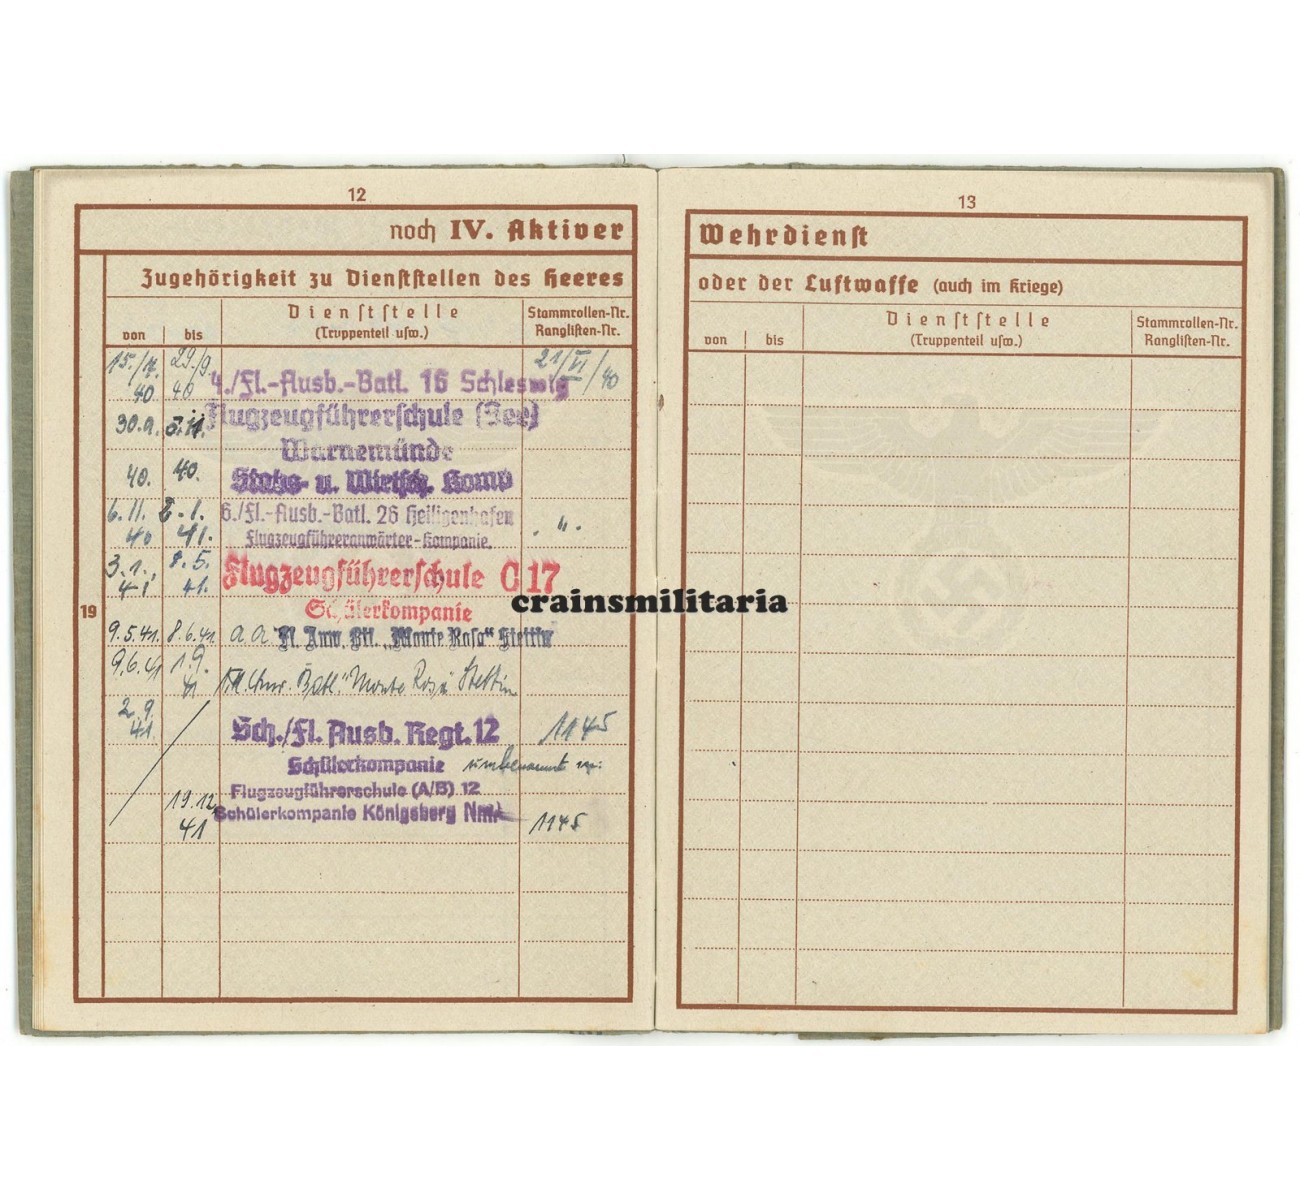 12
noch IV. Aktiver
Zugehörigkeit zu Dienststellen des Heeres
von
bis
Dienststelle
(Truppenteil usw.)
Stammrollen-Nr.
Ranglisten-Nr.
19
40
29./9.
40
4./Fl.-Ausb.-Batl. 16 Schleswig
21/VI/40
30.9.
40.
40.
Flugzeugführerschule (See)
Warnemünde
Stabs- u. Wirtsch. Komp
6.11.
40
8.1.
41.
6./Fl.-Ausb.-Batl. 26 Heiligenhafen
Flugzeugführeranwärter-Kompanie.
"
3.1.
41
8.5.
41.
Flugzeugführerschule C 17
Schülerkompanie
9.5.41.
8.6.41.
Fl. Anw. Btl. „Monte Rosa" Stettin
9.6.41
1.9.
41
Fl. Anw. Batl. "Monte Rosa" Stettin
2.9.
41.
Sch./Fl. Ausb. Regt. 12
1145
Schülerkompanie umbenannt in:
Flugzeugführerschule (A/B) 12
19.12.
41
Schülerkompanie Königsberg Nm.
1145
13
Wehrdienst
oder der Luftwaffe (auch im Kriege)
von
bis
Dienststelle
(Truppenteil usw.)
Stammrollen-Nr.
Ranglisten-Nr.
crainsmilitaria